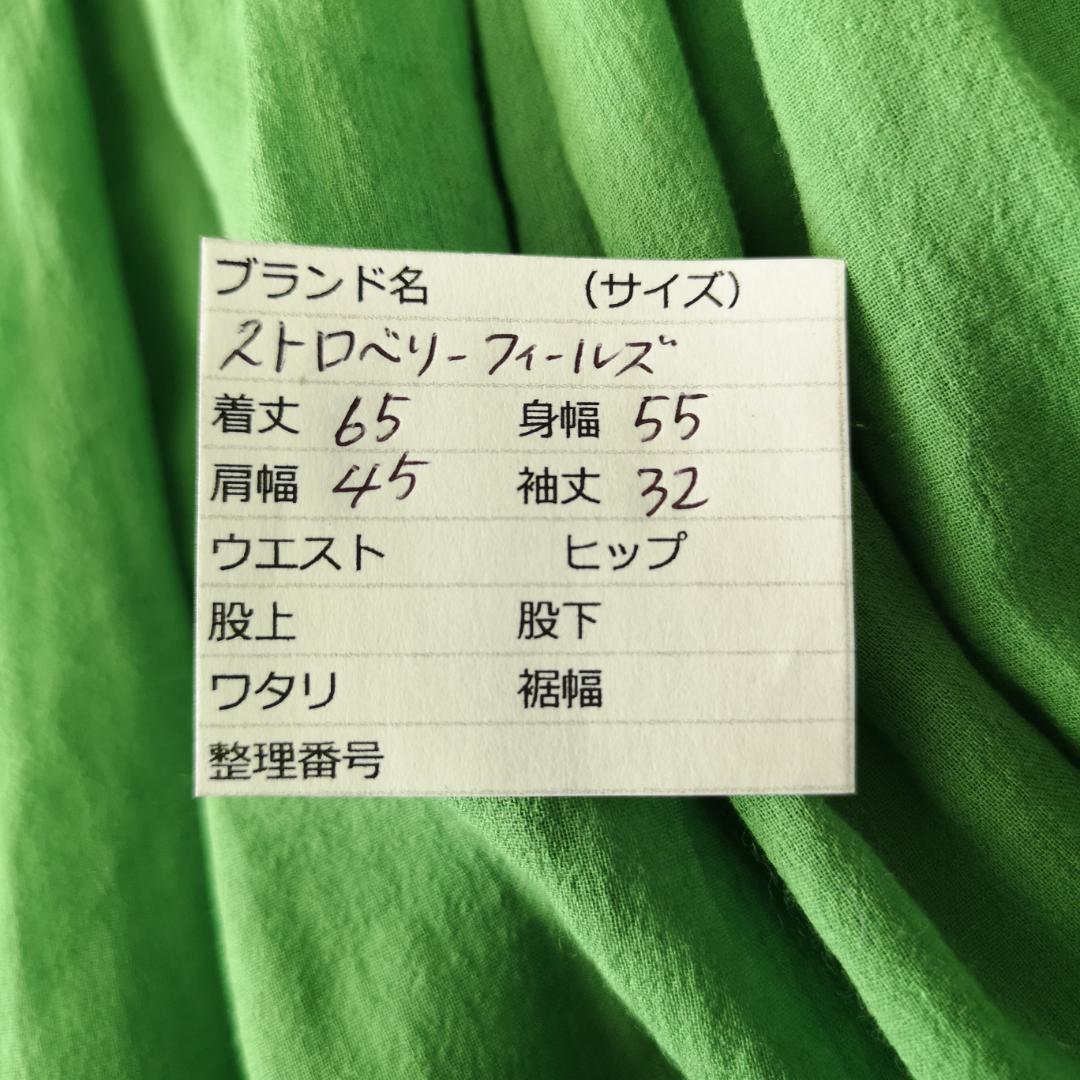 ブランド名 (サイズ)
ストロベリーフィールズ
着丈 65 身幅 55
肩幅 45 袖丈 32
ウエスト ヒップ
股上 股下
ワタリ 裾幅
整理番号